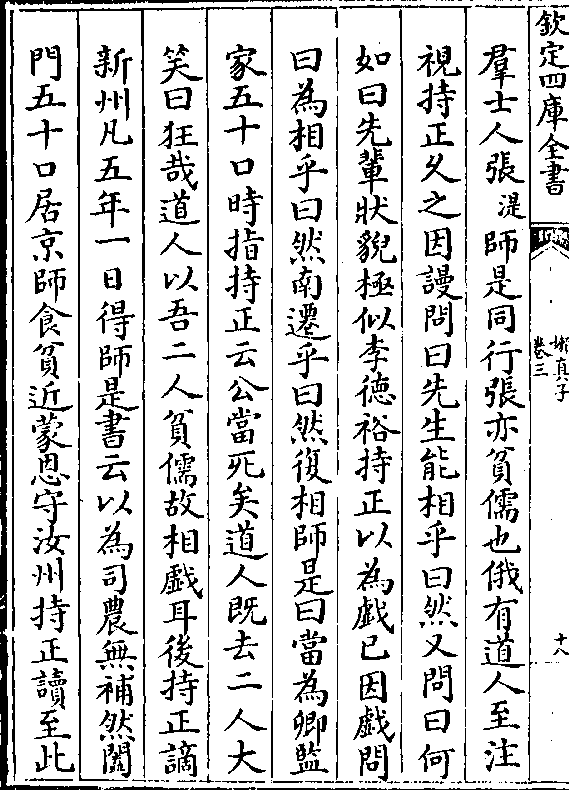 欽定四庫全書
嬾真子
卷三
十八
羣士人張湜師是同行張亦貧儒也俄有道人至注
視持正久之因謾問曰先生能相乎曰然又問曰何
如曰先輩狀貌極似李德裕持正以為戲已因戲問
曰為相乎曰然南遷乎曰然復相師是曰當為卿監
家五十口時指持正云公當死矣道人既去二人大
笑曰狂哉道人以吾二人貧儒故相戲耳後持正謫
新州凡五年一日得師是書云以為司農無補然闔
門五十口居京師食貧近蒙恩守汝州持正讀至此